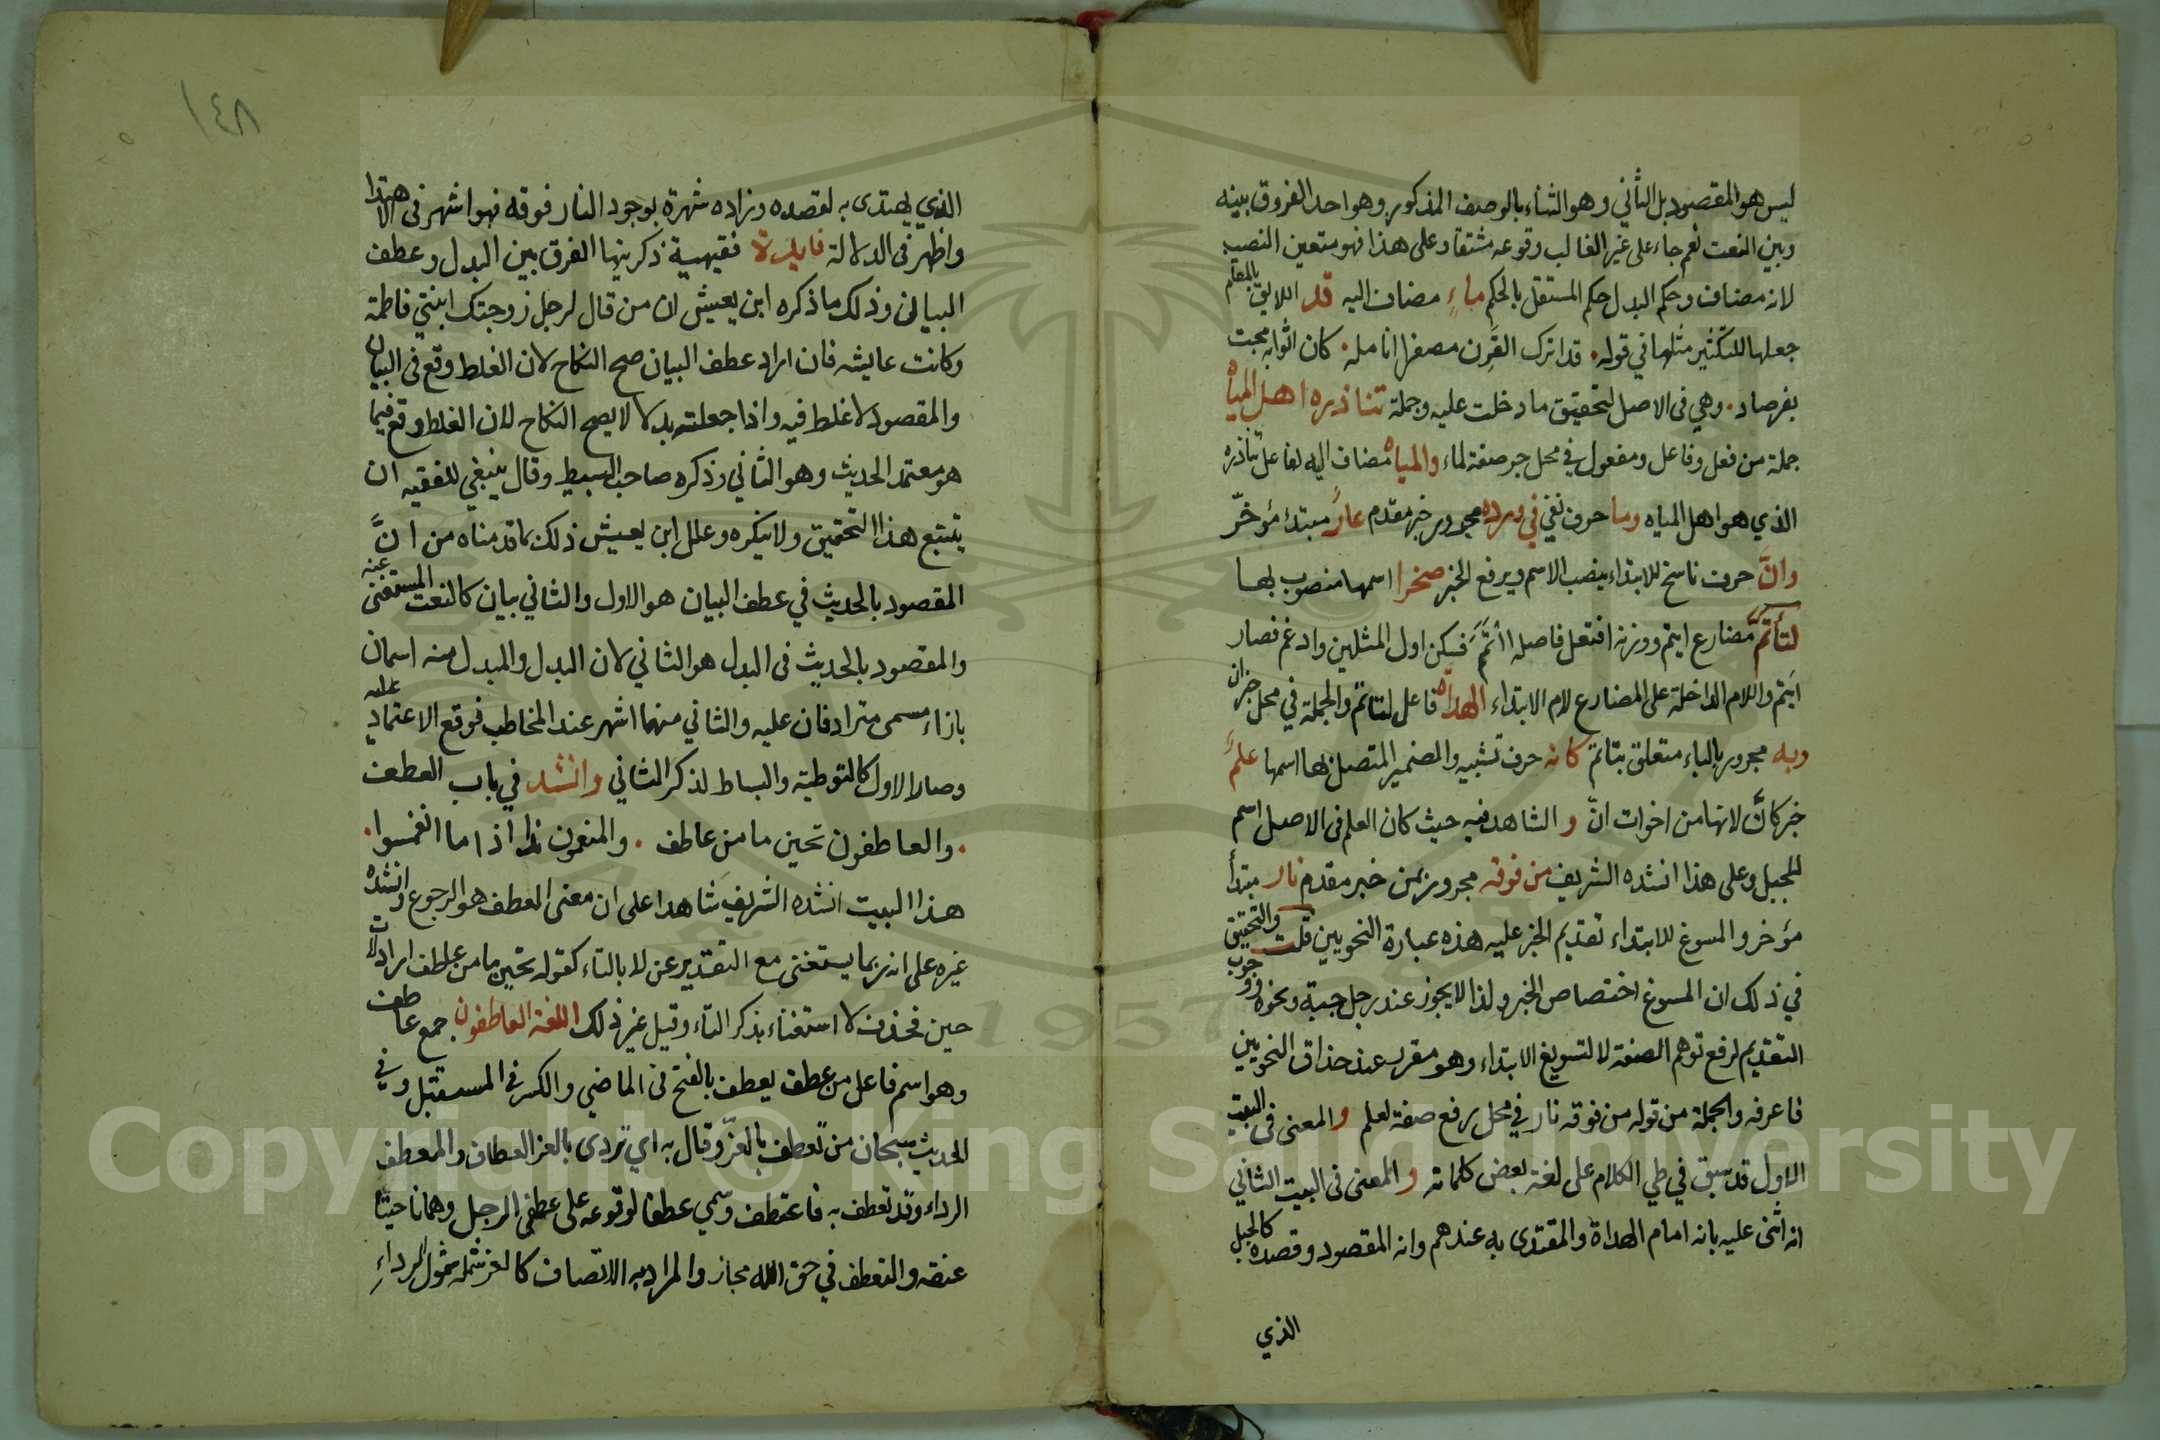 ليس هو المقصود بل الثاني وهو الثناء بالوصف المذكور وهو احد الفروق بينه
وبين النعت نعم جاء على غير الغالب وقوعه مشتقا وعلى هذا فهو متعين النصب
لانه مضاف وحكم البدل حكم المستقل بالحكم ماء مضاف اليه قد اللايق بالمقام
جعلها للتكثير مثلها في قوله قد اترك القرن مصفرا انامله كان اثوابه مجت
بفرصاد وهي في الاصل لتحقيق ما دخلت عليه وجملة تناذره اهل المياه
جملة من فعل وفاعل ومفعول في محل جر صفة لماء والمياه مضاف اليه لفاعل تناذره
الذي هو اهل المياه وما حرف نفي في ورده مجرور خبر مقدم عار مبتدء مؤخر
وانّ حرف ناسخ للابتداء ينصب الاسم ويرفع الخبر صخرا اسمها منصوب بها
لتأتمّ مضارع ايتم ووزنه افتعل فاصله اأتمم فسكن اول المثلين وادغم فصار
ايتم واللام الداخلة على المضارع لام الابتداء الهداة فاعل لتاتم والجملة في محل خبر ان
وبه مجرور بالباء متعلق بتاتم كانه حرف تشبيه والضمير المتصل بها اسمها علم
خبر كانّ لانها من اخوات انّ و الشاهد فيه حيث كان العلم في الاصل اسم
للجبل وعلى هذا انشده الشريف من فوقه مجرور بمن خبر مقدم نار مبتدأ
مؤخر والمسوغ للابتداء تقديم الخبر عليه هذه عبارة النحويين قلت والتحقيق
في ذلك ان المسوغ اختصاص الخبر ولذا لا يجوز عند رجل جبة ونحوه ووجوب
التقديم لرفع توهم الصفة لا لتسويغ الابتداء وهو مقرر عند حذاق النحويين
فاعرفه والجملة من قوله من فوقه نار في محل رفع صفة لعلم و المعنى في البيت
الاول قد سبق في طي الكلام على لغة بعض كلماته و المعنى في البيت الثاني
انه اثنى عليه بانه امام الهداة والمقتدى به عندهم وانه المقصود وقصده كالجبل
الذي
١٤٨
الذي يهتدى به لقصده وزاده شهرة بوجود النار فوقه فهو اشهر في الاهتدا
واظهر في الدلالة فايدة فقيهية ذكر فيها الفرق بين البدل وعطف
البيان وذلك ما ذكره ابن يعيش ان من قال لرجل زوجتك ابنتي فاطمة
وكانت عايشه فان اراد عطف البيان صح النكاح لان الغلط وقع في البيان
والمقصود لا غلط فيه واذا جعلته بدلا لا يصح النكاح لان الغلط وقع فيما
هو معتمد الحديث وهو الثاني وذكره صاحب البسيط وقال ينبغي للفقيه ان
يتتبع هذا التحقيق ولا ينكره وعلل ابن يعيش ذلك بما قدمناه من انّ
المقصود بالحديث في عطف البيان هو الاول والثاني بيان كالنعت المستغنى عنه
والمقصود بالحديث في البدل هو الثاني لان البدل والمبدل منه اسمان
بازاء مسمى مترادفان عليه والثاني منهما اشهر عند المخاطب فوقع الاعتماد عليه
وصار الاول كالتوطية والبساط لذكر الثاني وانشد في باب العطف
والعاطفون تحين ما من عاطف والمنعمون اذا ما انغمسوا
هذا البيت انشده الشريف شاهدا على ان معنى العطف هو الرجوع وانشده
غيره على انه ربما يستغنى مع التقدير عن لا بالتاء كقوله تحين ما من عاطف اراد لات
حين فحذف لا استغناء بذكر التاء وقيل غير ذلك اللغة العاطفون جمع عاطف
وهو اسم فاعل من عطف يعطف بالفتح في الماضي والكسر في المستقبل وفي
الحديث سبحان من تعطف بالعزّ وقال به اي تردى بالعز العطاف والمعطف
الرداء وقد تعطف به فاعتطف وسمي عطفا لوقوعه على عطفي الرجل وهما ناحيتا
عنقه والتعطف في حق الله مجاز والمراد به الاتصاف كالعز شمله شمول الرداء
Copyright © King Saud University
1957